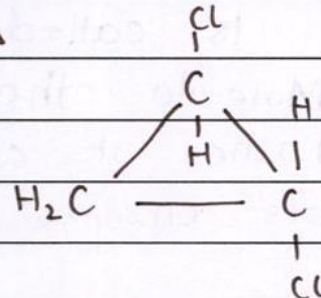 Cl
C H
H
H₂C C
Cl